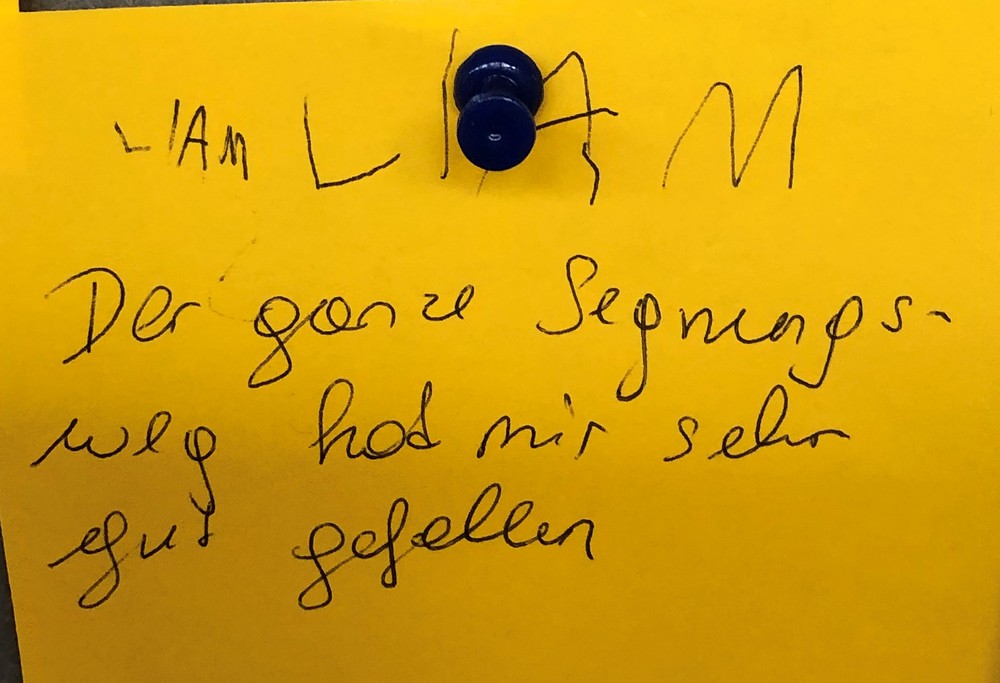 LIAM LIAM
Der ganze Segnungs-
weg hat mir sehr
gut gefallen